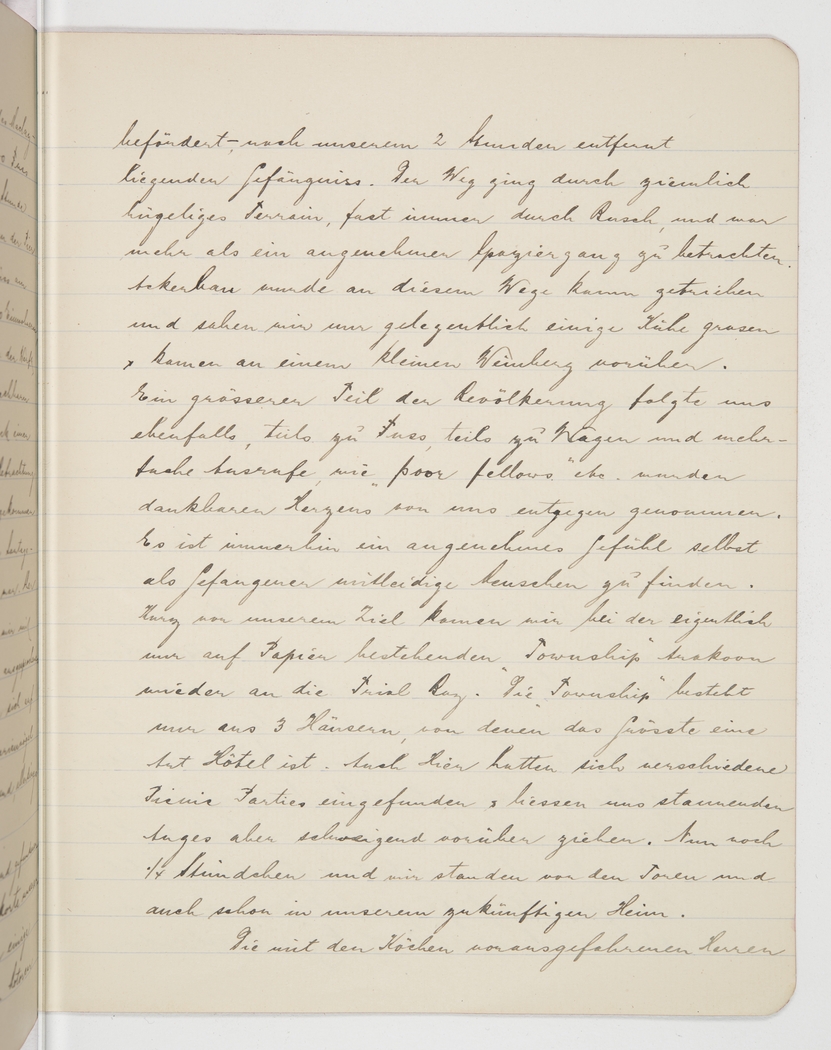 befördert –, nach unserem 2 Stunden entfernt
liegenden Gefängniss. Der Weg ging durch ziemlich
hügeliges Terrain, fast immer durch Busch, und war
mehr als ein angenehmer Spaziergang zu betrachten.
Ackerbau wurde an diesem Wege kaum getrieben
und sahen wir nur gelegentlich einige Kühe grasen
& kamen an einem kleinen Weinberg vorüber.
Ein grösserer Teil der Bevölkerung folgte uns
ebenfalls, teils zu Fuss, teils zu Wagen und mehr-
fache Ausrufe, wie "poor fellows" etc. wurden
dankbaren Herzens von uns entgegen genommen.
Es ist immerhin ein angenehmes Gefühl selbst
als Gefangener mitleidige Menschen zu finden.
Kurz vor unserem Ziel kamen wir bei der eigentlich
nur auf Papier bestehenden "Township" Arakoon
wieder an die Trial Bay. Die "Township" besteht
nur aus 3 Häusern, von denen das Grösste eine
Art Hôtel ist. Auch Hier hatten sich verschiedene
Picnic Parties eingefunden & liessen uns staunenden
Auges aber schweigend vorüber ziehen. Nun noch
1/4 Stündchen und wir standen vor den Toren und
auch schon in unserem zukünftigen Heim.
Die mit den Köchen vorausgefahrenen Herren